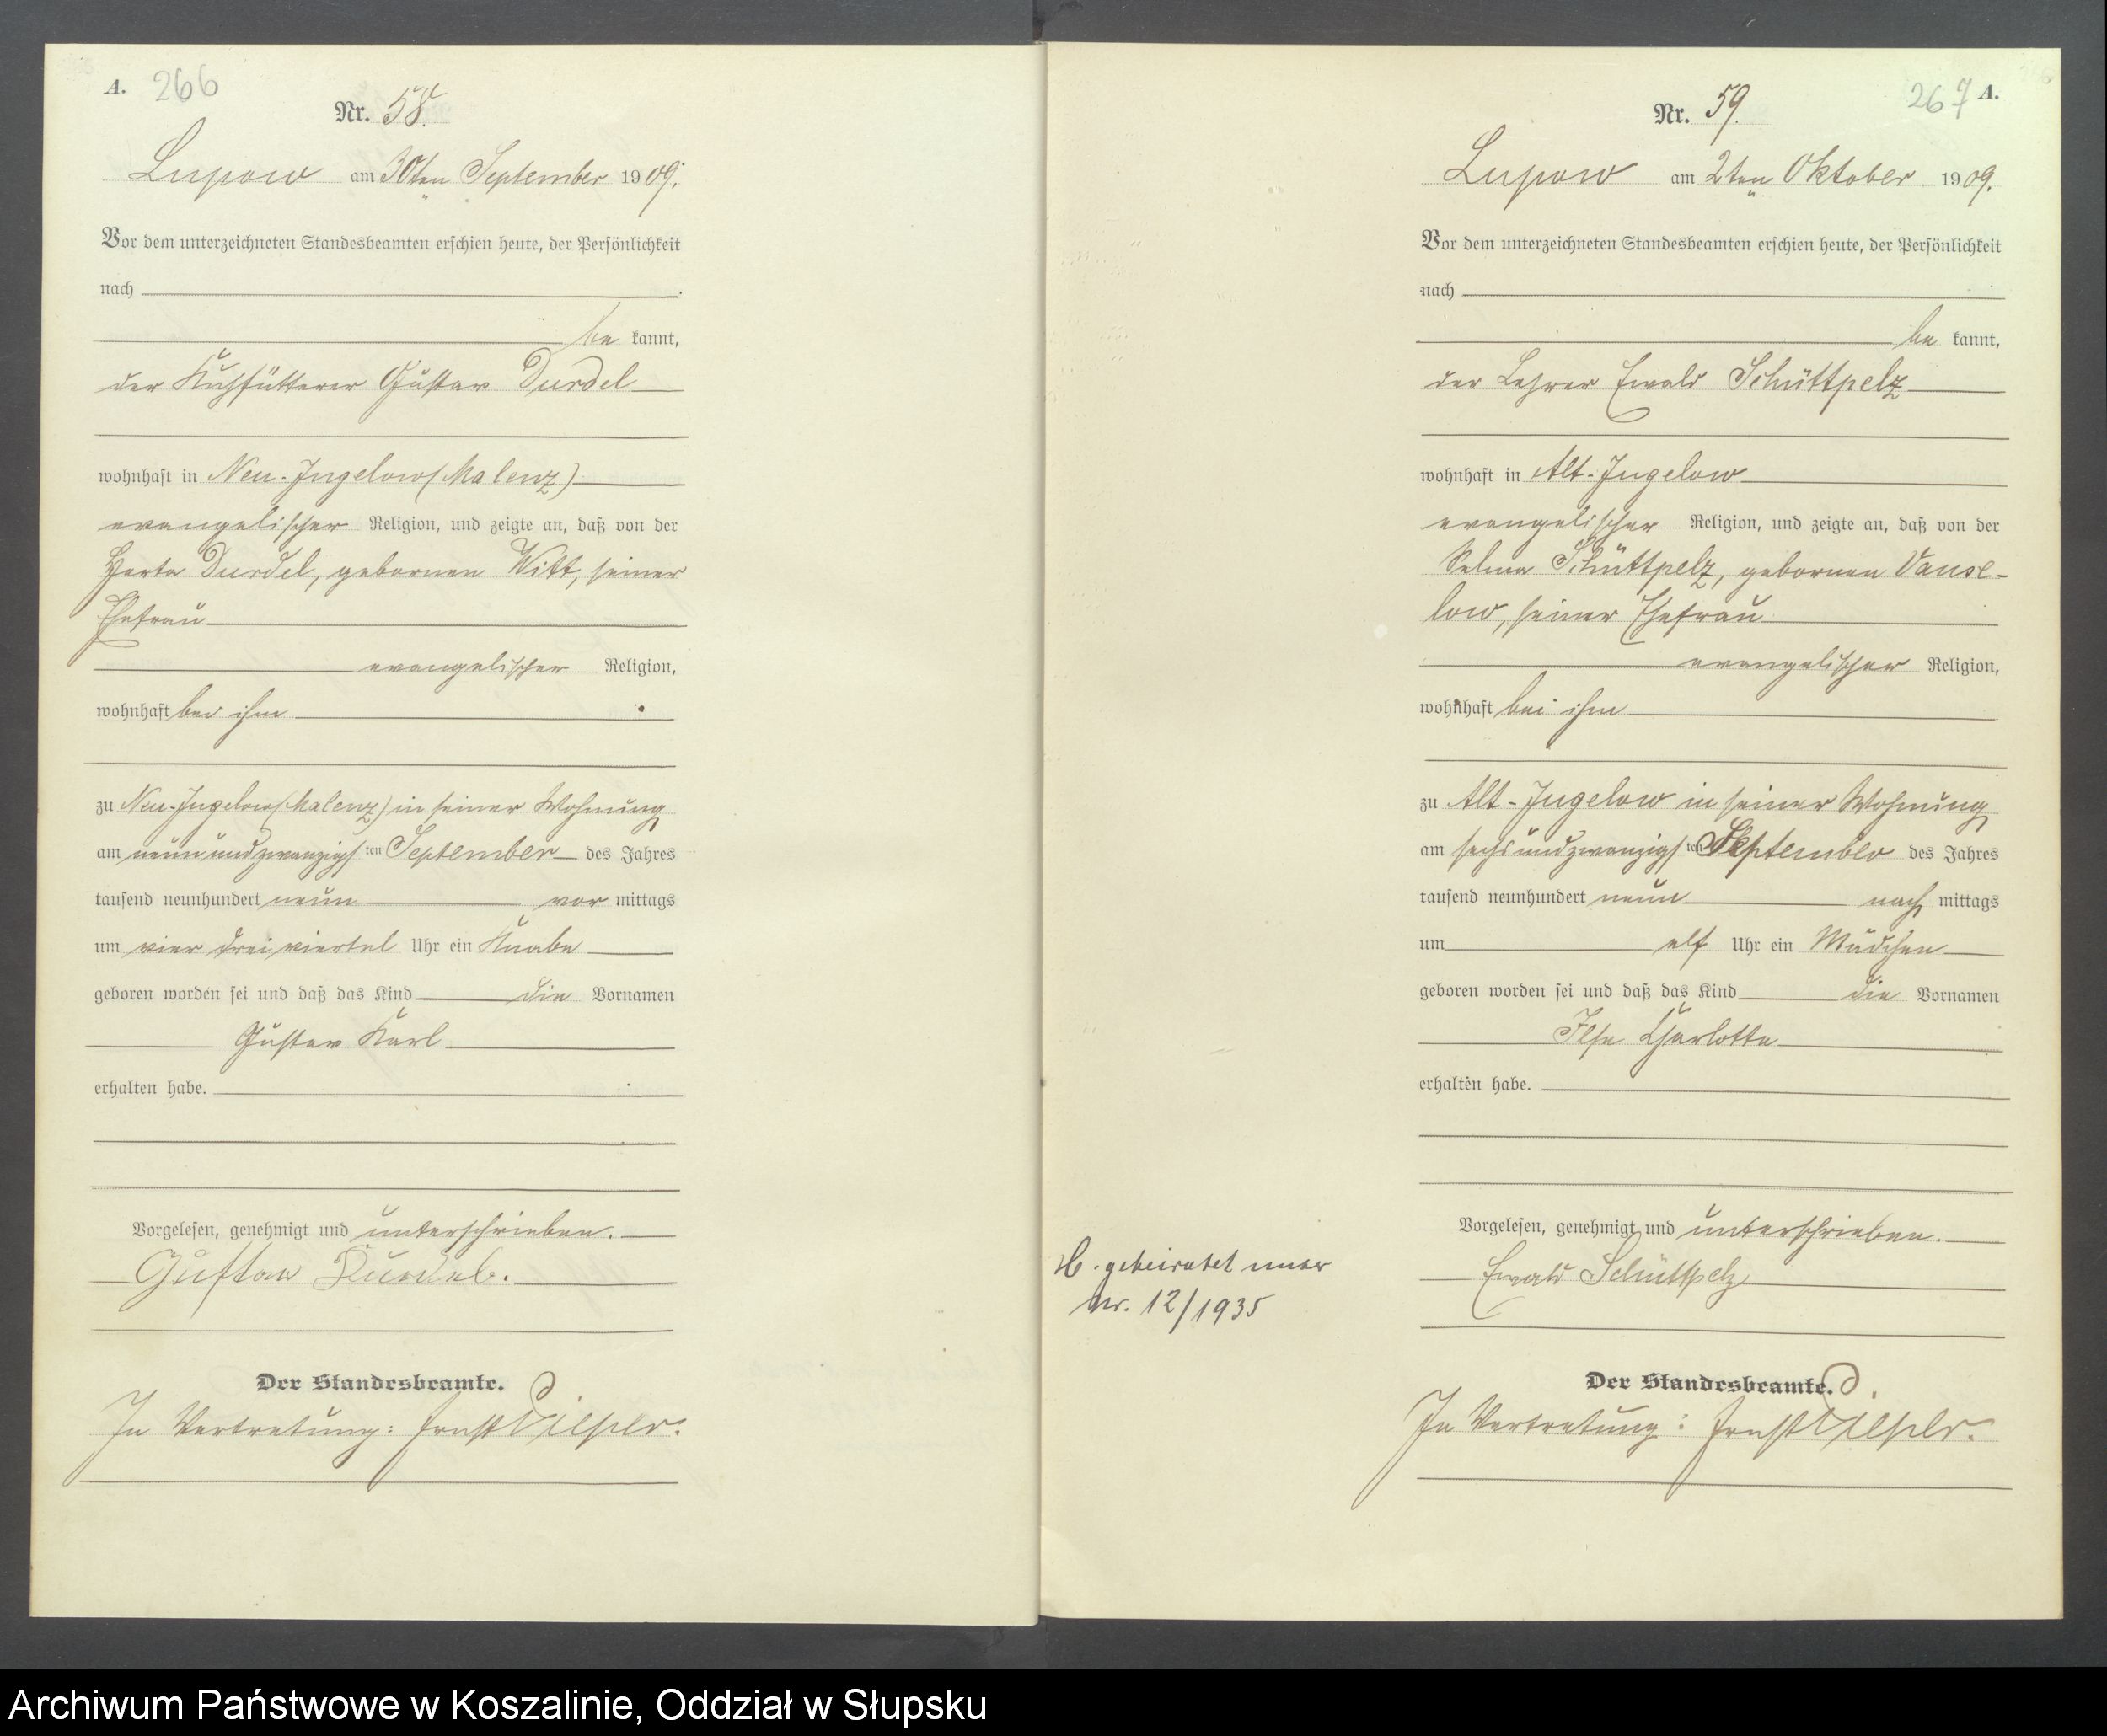 A. 266
Nr. 58.
Lupow am 30ten September 1909.
Vor dem unterzeichneten Standesbeamten erschien heute, der Persönlichkeit
nach
be kannt,
der Kuhfütterer Gustav Durdel
wohnhaft in Neu-Jugelow (Malenz)
evangelischer Religion, und zeigte an, daß von der
Herta Durdel, gebornen Witt, seiner
Ehefrau
evangelischer Religion,
wohnhaft bei ihm
zu Neu-Jugelow (Malenz) in seiner Wohnung
am neunundzwanzigsten September des Jahres
tausend neunhundert neun vor mittags
um vier drei viertel Uhr ein Knabe
geboren worden sei und daß das Kind die Vornamen
Gustav Karl
erhalten habe.
Vorgelesen, genehmigt und unterschrieben.
Gustav Durdel.
Der Standesbeamte.
In Vertretung: Ernst
267 A.
Nr. 59.
Lupow am 2ten Oktober 1909.
Vor dem unterzeichneten Standesbeamten erschien heute, der Persönlichkeit
nach
be kannt,
der Lehrer Ewald Schüttpelz
wohnhaft in Alt-Jugelow
evangelischer Religion, und zeigte an, daß von der
Selma Schüttpelz, gebornen Vanse-
low, seiner Ehefrau
evangelischer Religion,
wohnhaft bei ihm
zu Alt-Jugelow in seiner Wohnung
am sechsundzwanzigsten September des Jahres
tausend neunhundert neun nach mittags
um elf Uhr ein Mädchen
geboren worden sei und daß das Kind die Vornamen
Ilse Charlotte
erhalten habe.
Vorgelesen, genehmigt und unterschrieben.
Ewald Schüttpelz
H. geheiratet unter
Nr. 12/1935
Der Standesbeamte.
In Vertretung: Ernst
Archiwum Państwowe w Koszalinie, Oddział w Słupsku